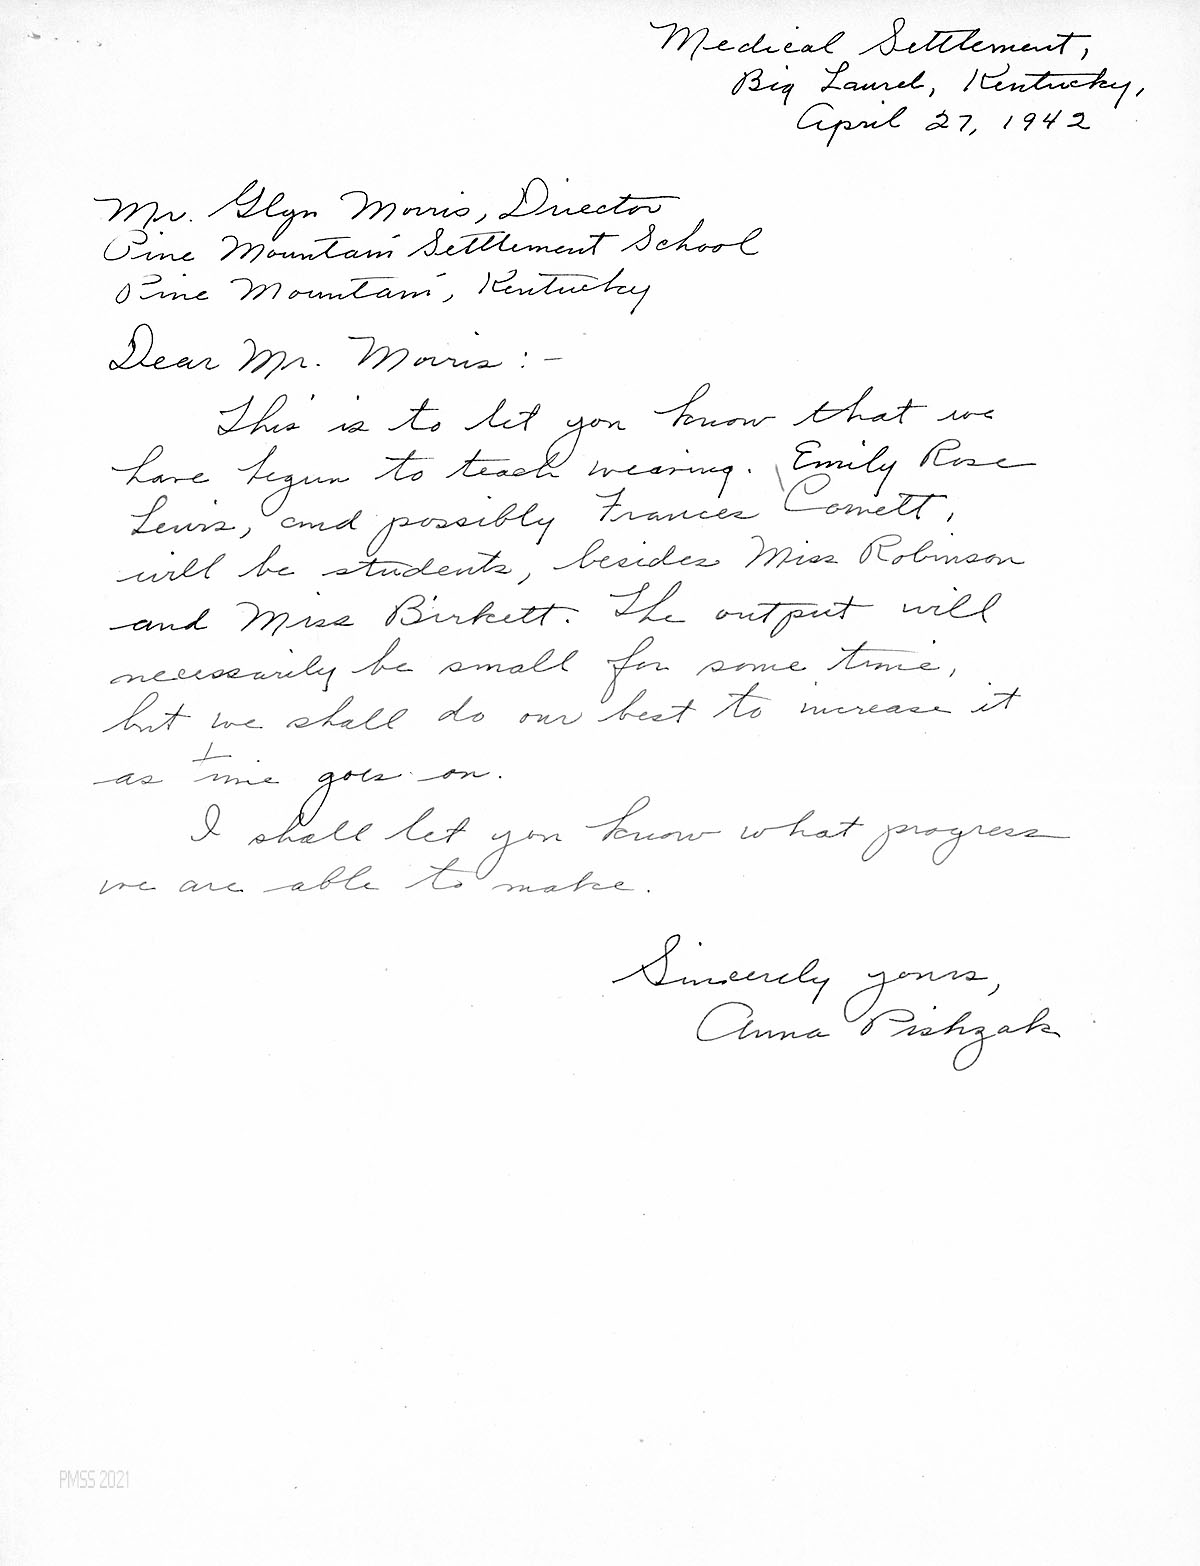 Medical Settlement,
Big Laurel, Kentucky,
April 27, 1942
Mr. Glyn Morris, Director
Pine Mountain Settlement School
Pine Mountain, Kentucky
Dear Mr. Morris:-
This is to let you know that we
have begun to teach weaving. Emily Rose
Lewis, and possibly Frances Cornett,
will be students, besides Miss Robinson
and Miss Birkett. The output will
necessarily be small for some time,
but we shall do our best to increase it
as time goes on.
I shall let you know what progress
we are able to make.
Sincerely yours,
Anna Pishzak
PMSS 2021